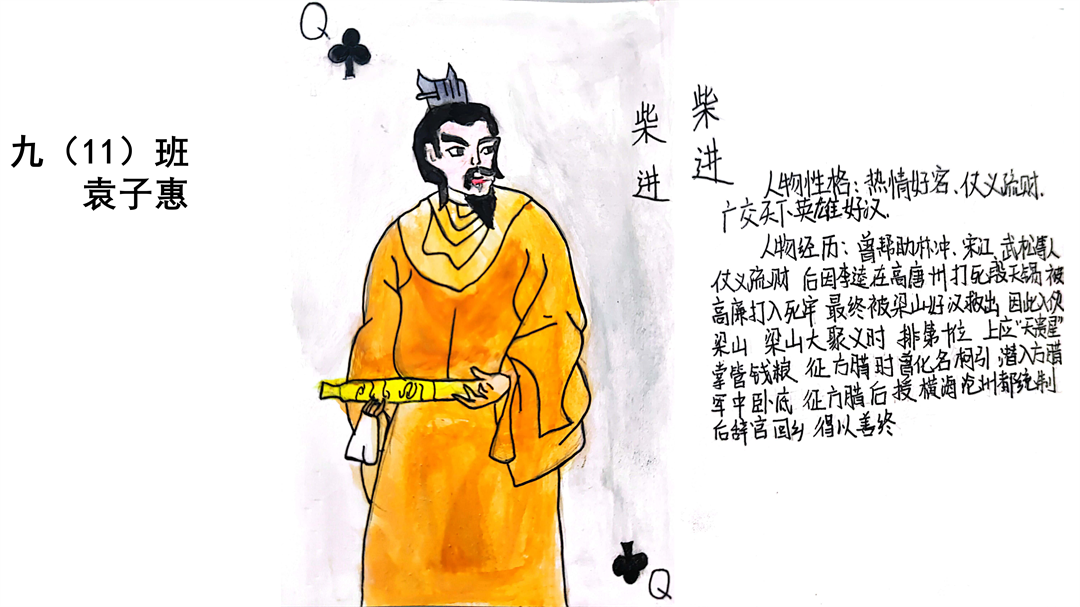 九（11）班
袁子惠
Q
柴进
柴进
人物性格：热情好客、仗义疏财、
广交天下英雄好汉.
人物经历：曾帮助林冲、宋江、武松等人
仗义疏财 后因李逵在高唐州打死殷天锡 被
高廉打入死牢 最终被梁山好汉救出 因此入伙
梁山 梁山大聚义时 排第十位 上应“天贵星”
掌管钱粮 征方腊时曾化名柯引 潜入方腊
军中卧底 征方腊后 授横海沧州都统制
后辞官回乡 得以善终
Q